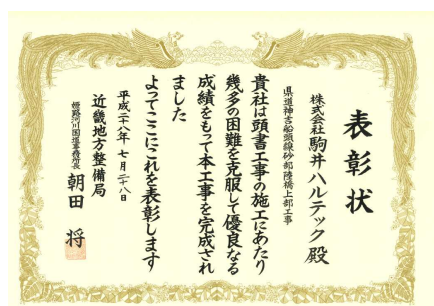 表彰状
株式会社駒井ハルテック殿
県道神吉船頭線砂部陸橋上部工事
貴社は頭書工事の施工にあたり
幾多の困難を克服して優良なる
成績をもって本工事を完成され
ました
よってここにこれを表彰します
平成二十八年七月二十八日
近畿地方整備局
姫路河川国道事務所長
朝田 将